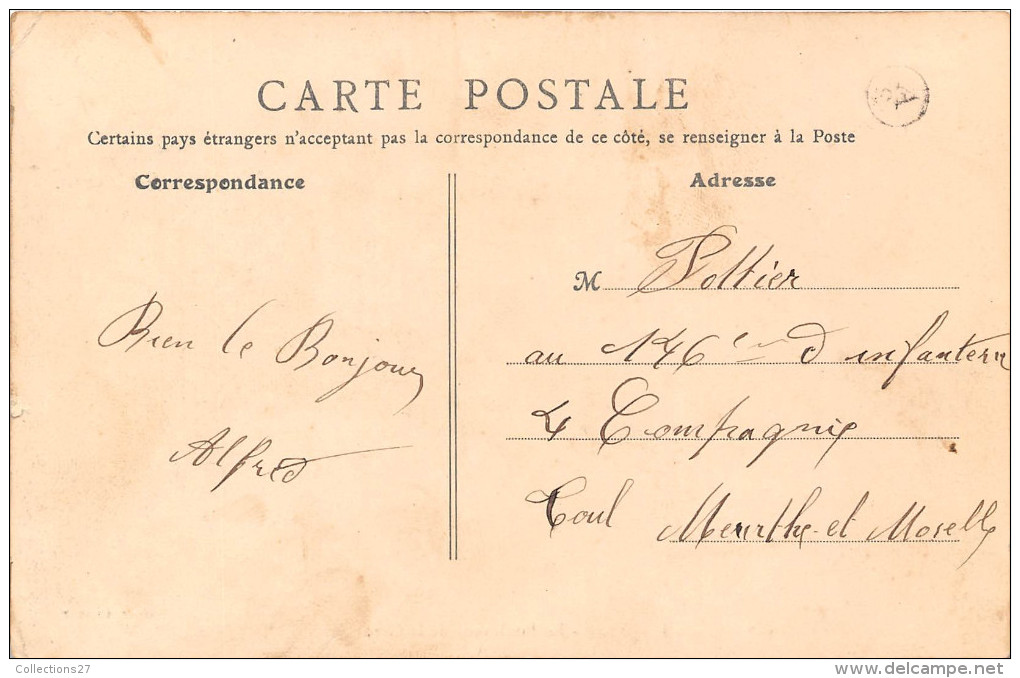 CARTE POSTALE
Certains pays étrangers n'acceptant pas la correspondance de ce côté, se renseigner à la Poste
Correspondance
Bien le Bonjour
Alfred
Adresse
M Poltier
au 146 em d infanterie
4 Compagnie
Toul Meurthe-et Moselle
Collections27
delcampe.net